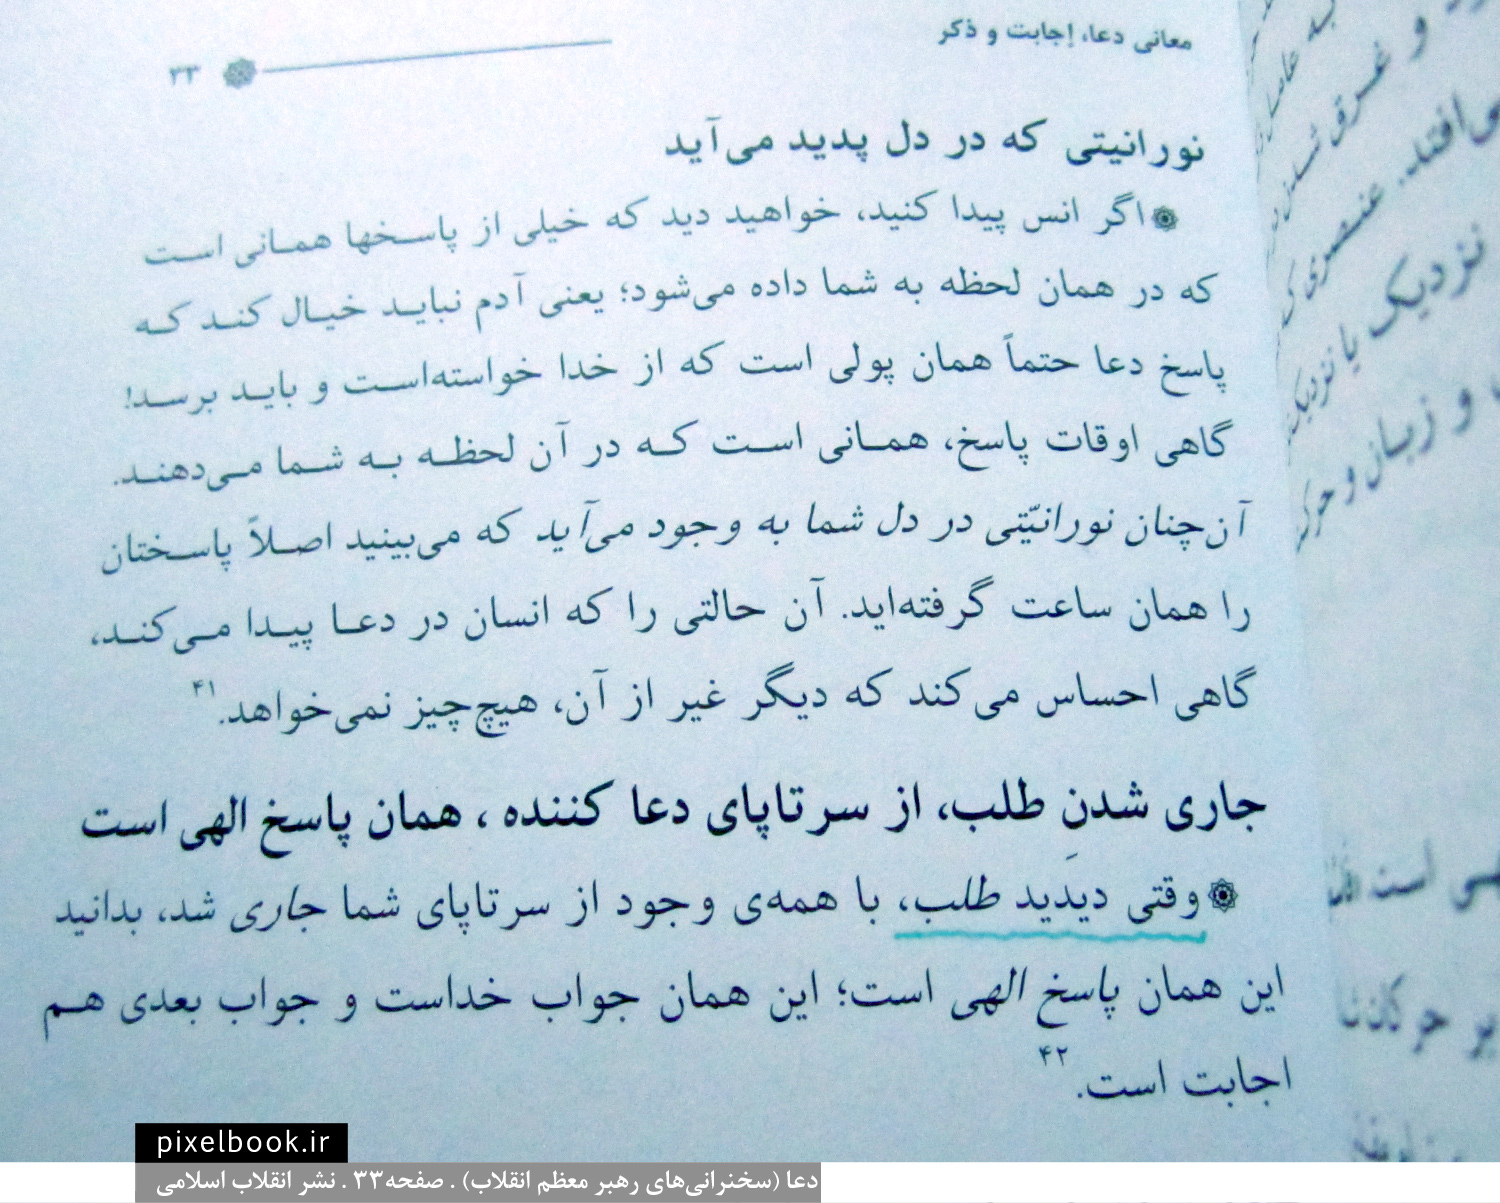 معانی دعا، إجابت و ذکر
۳۳
نورانیتی که در دل پدید می‌آید
اگر انس پیدا کنید، خواهید دید که خیلی از پاسخها همانی است
که در همان لحظه به شما داده می‌شود؛ یعنی آدم نباید خیال کند که
پاسخ دعا حتماً همان پولی است که از خدا خواسته‌است و باید برسد!
گاهی اوقات پاسخ، همانی است که در آن لحظه به شما می‌دهند.
آن‌چنان نورانیّتی در دل شما به وجود می‌آید که می‌بینید اصلاً پاسختان
را همان ساعت گرفته‌اید. آن حالتی را که انسان در دعا پیدا می‌کند،
گاهی احساس می‌کند که دیگر غیر از آن، هیچ‌چیز نمی‌خواهد.۴۱
جاری شدنِ طلب، از سرتاپای دعا کننده ، همان پاسخ الهی است
وقتی دیدَید طلب، با همه‌ی وجود از سرتاپای شما جاری شد، بدانید
این همان پاسخ الهی است؛ این همان جواب خداست و جواب بعدی هم
اجابت است.۴۲
به عامل
و غرق شدن در
می‌افتد. عنصری که
نزدیک یا نزدیک
و زبان و حرکت
الهی است
بر حرکات
pixelbook.ir
دعا (سخنرانی‌های رهبر معظم انقلاب) . صفحه۳۳ . نشر انقلاب اسلامی